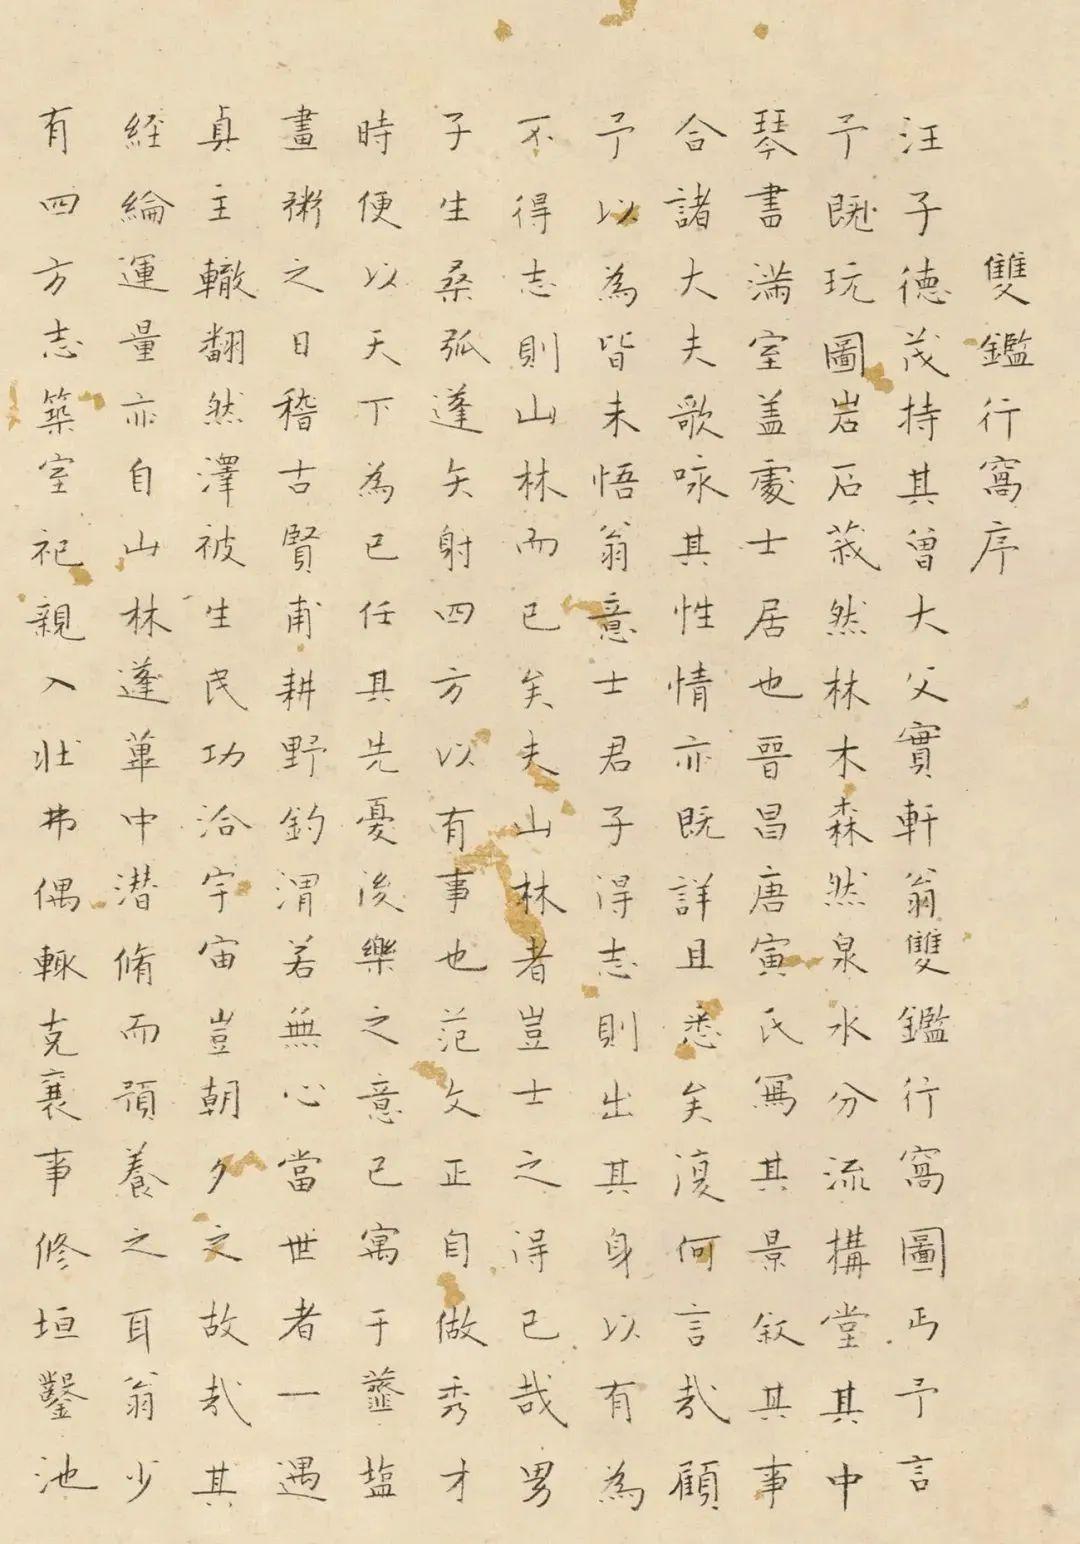 雙鑑行窩序
汪子德茂持其曾大父實軒翁雙鑑行窩圖丐予言
予既玩圖岩石莪然林木森然泉水分流構堂其中
琴書滿室蓋處士居也晉昌唐寅氏寫其景叙其事
合諸大夫歌咏其性情亦既詳且悉矣復何言哉顧
予以為皆未悟翁意士君子得志則出其身以有為
不得志則山林而已矣夫山林者豈士之得已哉男
子生桑弧蓬矢射四方以有事也范文正自做秀才
時便以天下為己任其先憂後樂之意已寓于虀塩
畫粥之日稽古賢甫耕野釣渭若無心當世者一遇
真主轍翻然澤被生民功洽宇宙豈朝夕之故哉其
經綸運量亦自山林蓬蓽中潛脩而預養之耳翁少
有四方志築室祀親入壯弗偶輙克襄事修垣鑿池